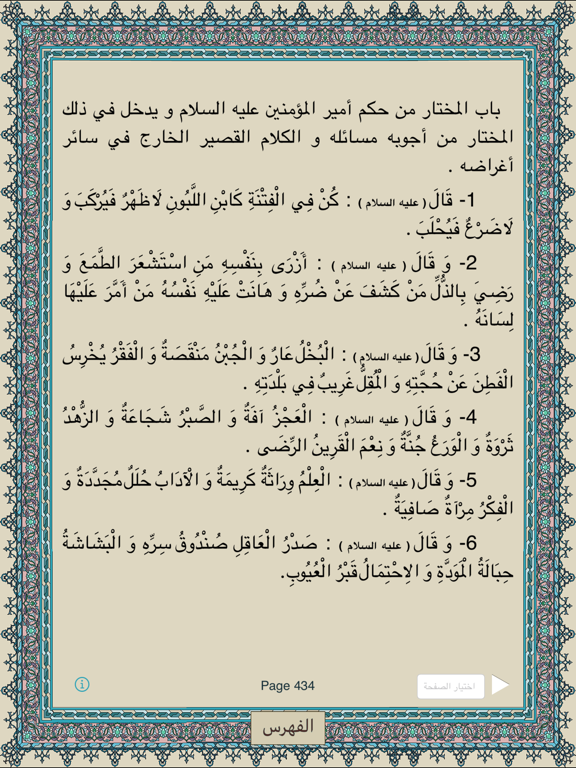 باب المختار من حكم أمير المؤمنين عليه السلام و يدخل في ذلك
المختار من أجوبه مسائله و الكلام القصير الخارج في سائر
أغراضه .
1- قَالَ ( عليه السلام ) : كُنْ فِي الْفِتْنَةِ كَابْنِ اللَّبُونِ لَاظَهْرٌ فَيُرْكَبَ وَ
لَاضَرْعٌ فَيُحْلَبَ .
2- وَ قَالَ ( عليه السلام ) : أَزْرَى بِنَفْسِهِ مَنِ اسْتَشْعَرَ الطَّمَعَ وَ
رَضِيَ بِالذُّلِّ مَنْ كَشَفَ عَنْ ضُرِّهِ وَ هَانَتْ عَلَيْهِ نَفْسُهُ مَنْ أَمَّرَ عَلَيْهَا
لِسَانَهُ .
3- وَ قَالَ ( عليه السلام ) : الْبُخْلُ عَارٌ وَ الْجُبْنُ مَنْقَصَةٌ وَ الْفَقْرُ يُخْرِسُ
الْفَطِنَ عَنْ حُجَّتِهِ وَ الْمُقِلُّ غَرِيبٌ فِي بَلْدَتِهِ .
4- وَ قَالَ ( عليه السلام ) : الْعَجْزُ آفَةٌ وَ الصَّبْرُ شَجَاعَةٌ وَ الزُّهْدُ
ثَرْوَةٌ وَ الْوَرَعُ جُنَّةٌ وَ نِعْمَ الْقَرِينُ الرِّضَى .
5- وَ قَالَ ( عليه السلام ) : الْعِلْمُ وِرَاثَةٌ كَرِيمَةٌ وَ الْآدَابُ حُلَلٌ مُجَدَّدَةٌ وَ
الْفِكْرُ مِرْآةٌ صَافِيَةٌ .
6- وَ قَالَ ( عليه السلام ) : صَدْرُ الْعَاقِلِ صُنْدُوقُ سِرِّهِ وَ الْبَشَاشَةُ
حِبَالَةُ الْمَوَدَّةِ وَ الِاحْتِمَالُ قَبْرُ الْعُيُوبِ.
Page 434
اختيار الصفحة
الفهرس